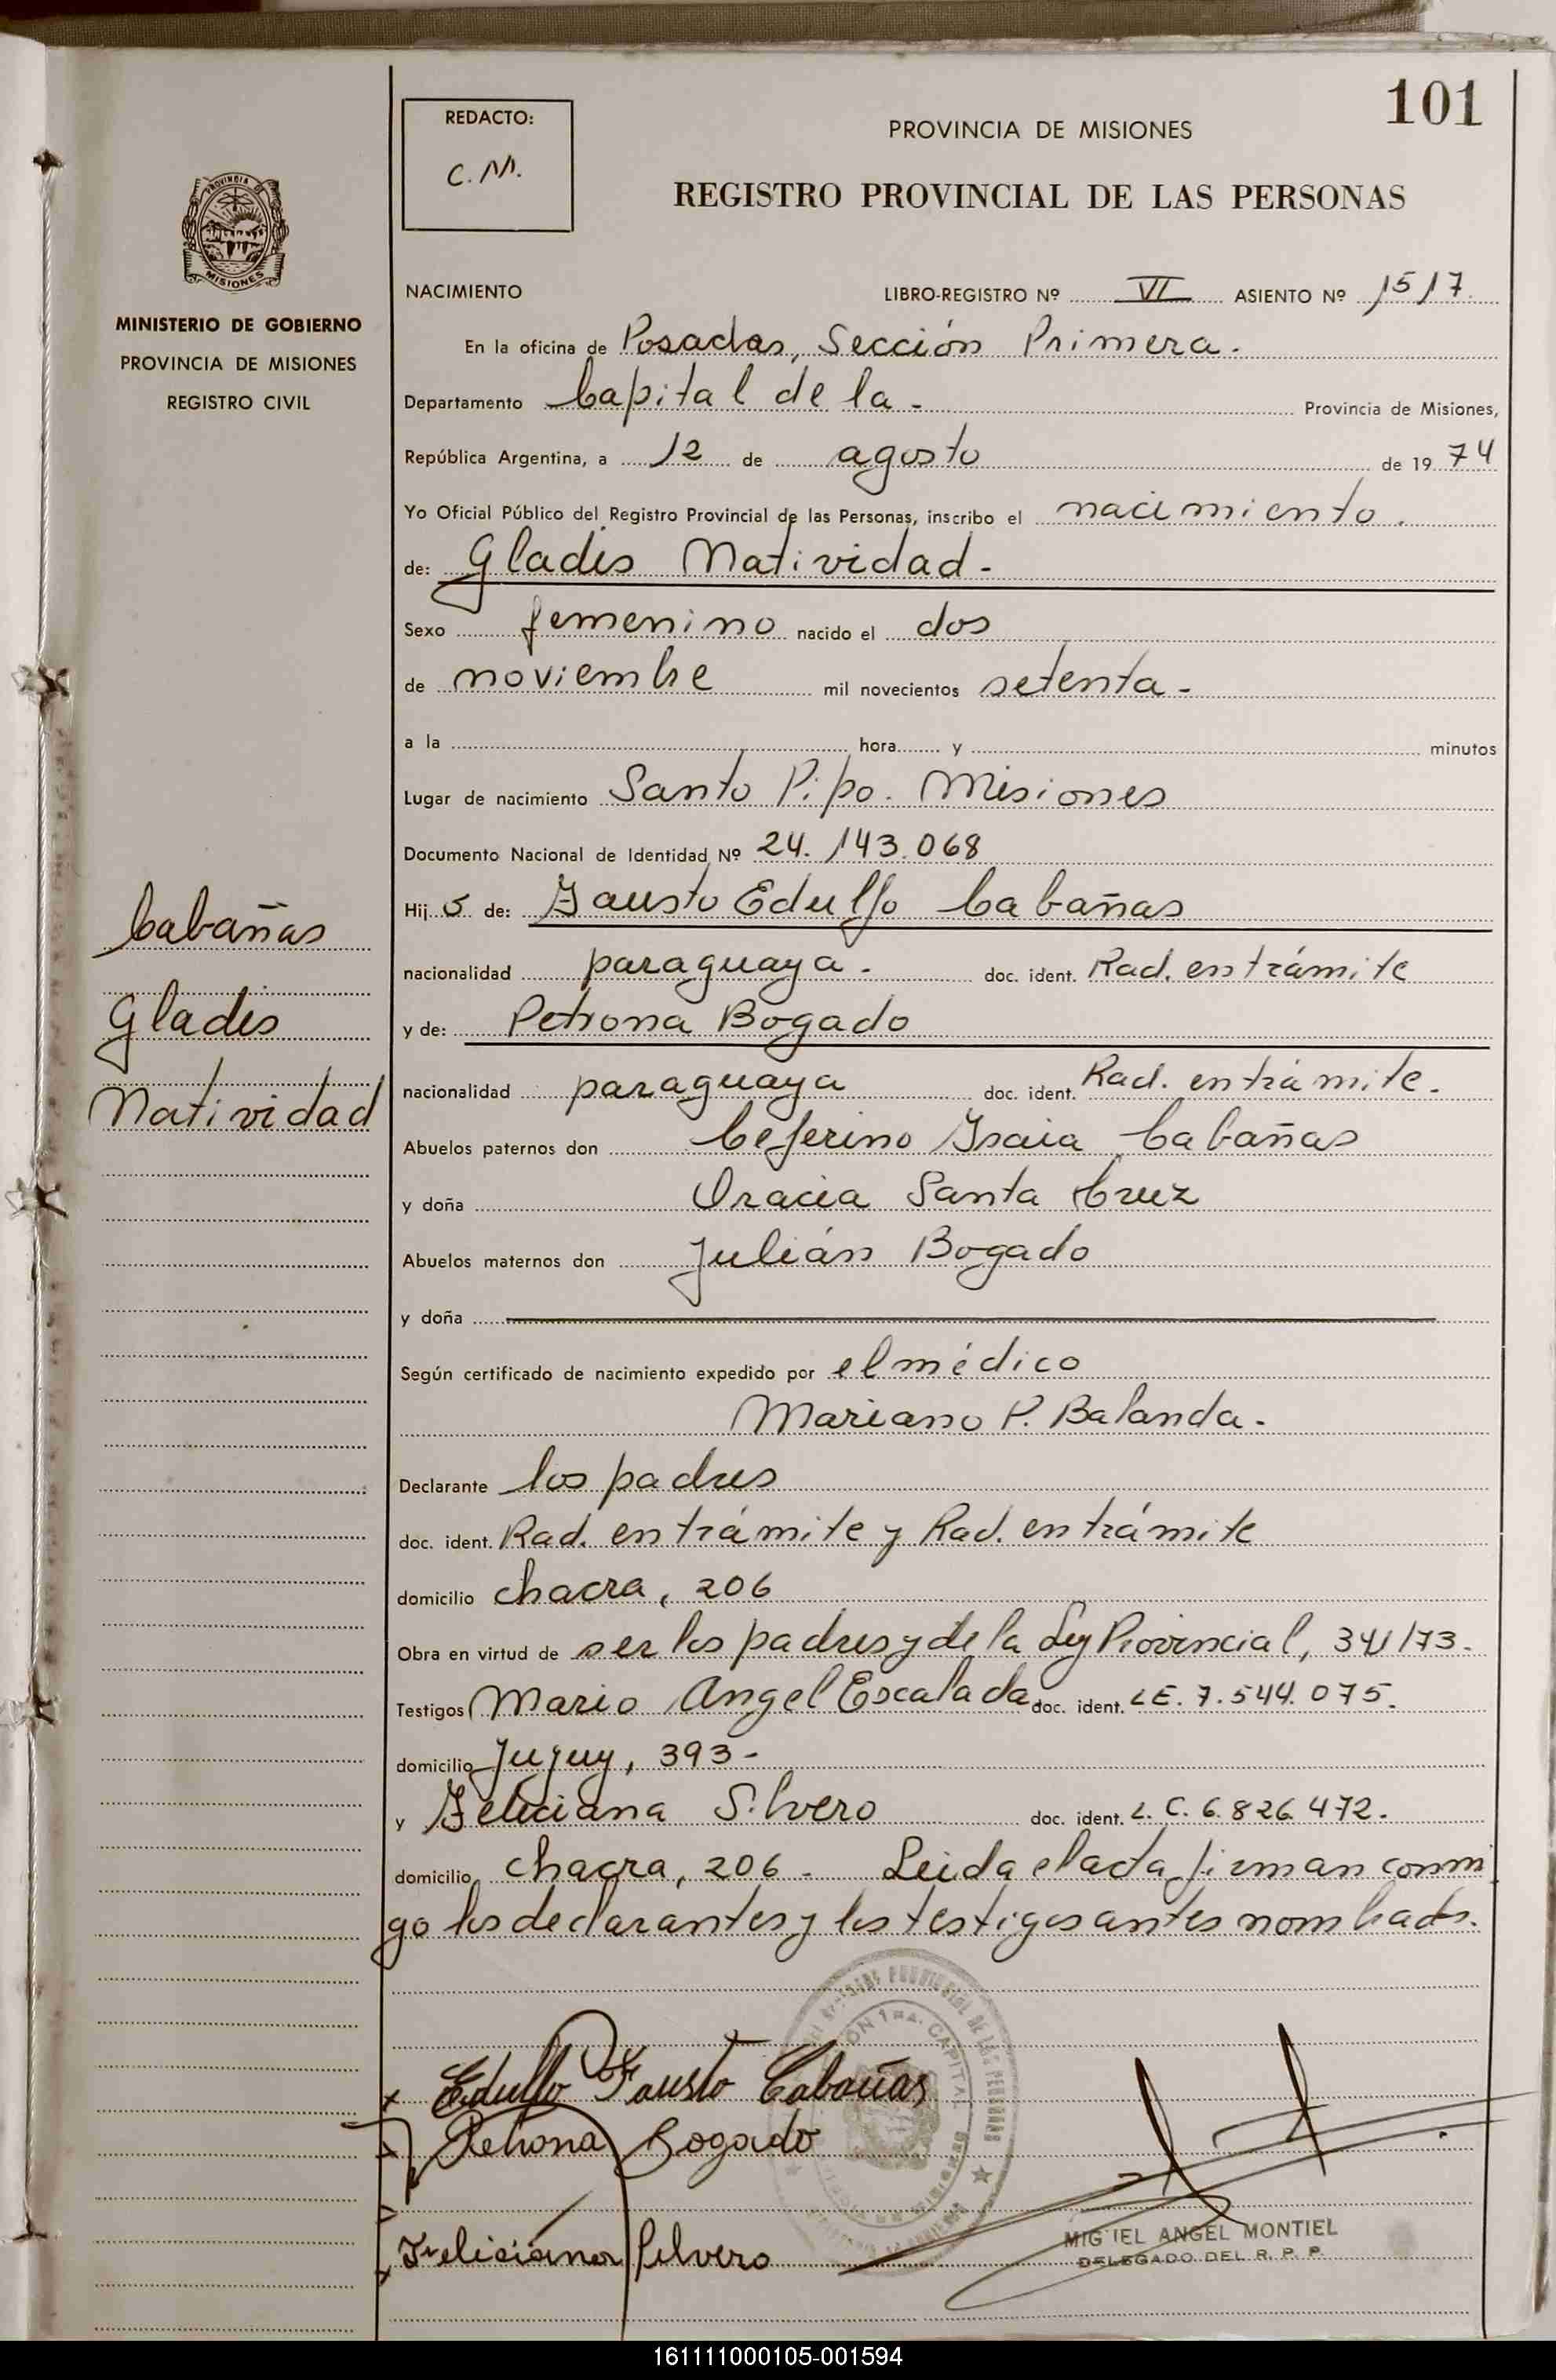 101
REDACTO:
C.M.
PROVINCIA DE MISIONES
REGISTRO PROVINCIAL DE LAS PERSONAS
PROVINCIA DE
MISIONES
MINISTERIO DE GOBIERNO
PROVINCIA DE MISIONES
REGISTRO CIVIL
NACIMIENTO LIBRO-REGISTRO Nº VI ASIENTO Nº 1517.
En la oficina de Posadas, Sección Primera.
Departamento Capital de la - Provincia de Misiones,
República Argentina, a 12 de agosto de 1974
Yo Oficial Público del Registro Provincial de las Personas, inscribo el nacimiento.
de: Gladis Natividad -
Sexo femenino nacido el dos
de noviembre mil novecientos setenta -
a la hora y minutos
Lugar de nacimiento Santo Pipo. Misiones
Documento Nacional de Identidad Nº 24.143.068
Hij o de: Fausto Edulfo Cabañas
nacionalidad paraguaya. doc. ident. Rad. en trámite
y de: Petrona Bogado
nacionalidad paraguaya doc. ident. Rad. en trámite.
Abuelos paternos don Ceferino Isaia Cabañas
y doña Oracia Santa Cruz
Abuelos maternos don Julián Bogado
y doña
Según certificado de nacimiento expedido por el médico
Mariano P. Balanda.
Declarante los padres
doc. ident. Rad. en trámite y Rad. en trámite
domicilio chacra, 206
Obra en virtud de ser los padres y de la Ley Provincial, 341/73.
Testigos Mario Angel Escalada doc. ident. LE. 7.544.075.
domicilio Jujuy, 393 -
y Feliciana Silvero doc. ident. L.C. 6.826.472.
domicilio chacra, 206 - Leida el acta, firman conmi
go los declarantes y los testigos antes nombrados.
Cabañas
Gladis
Natividad
x Edulfo Fausto Cabañas
Petrona Bogado
x Feliciana Silvero
MIGUEL ANGEL MONTIEL
DELEGADO DEL R. P. P.
161111000105-001594